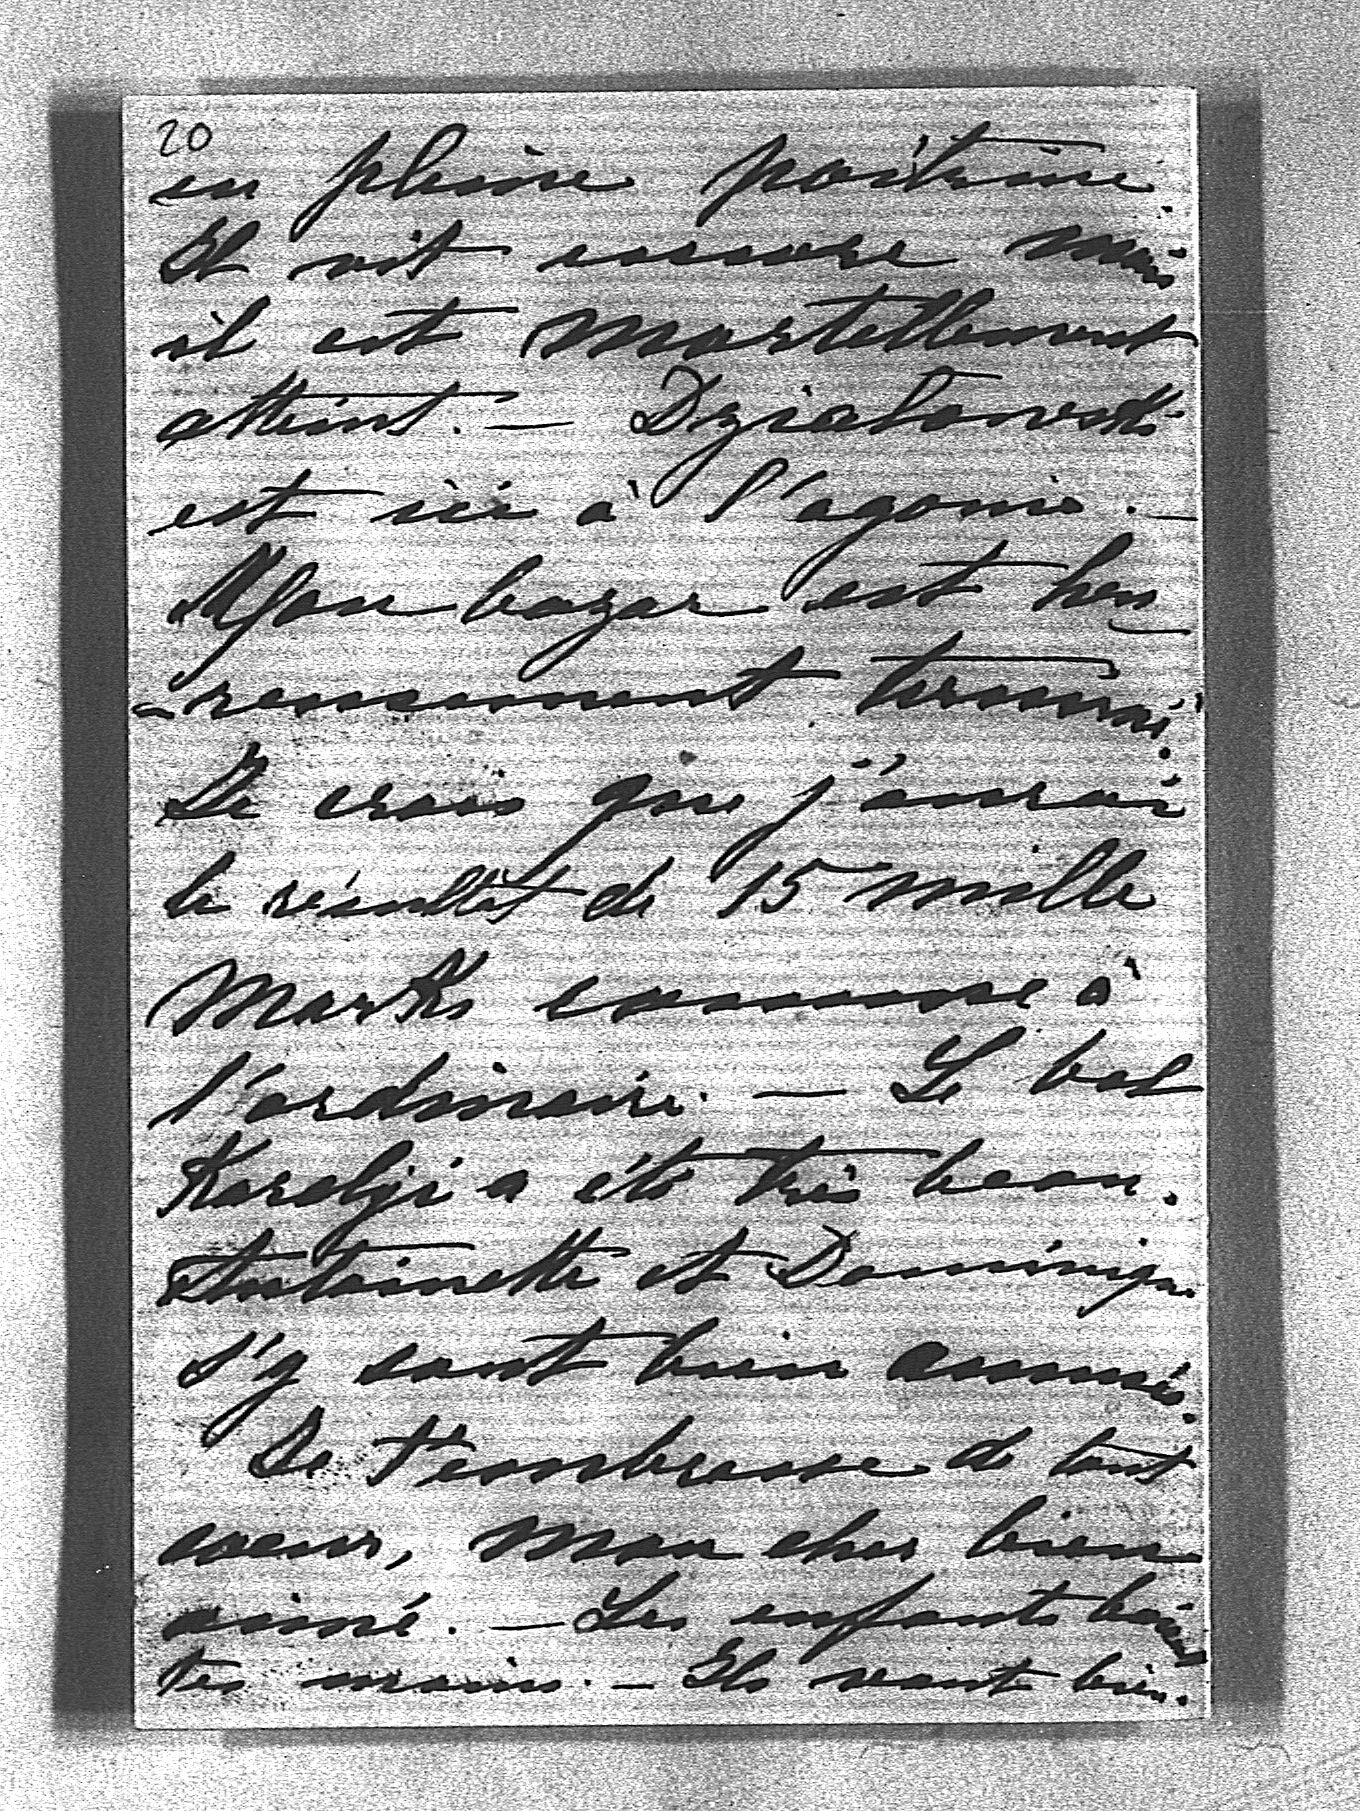 20
en pleine poitrine.
Il vit encore mais
il est mortellement
atteint. — Dziatowski
est ici à l'agonie. —
Mon bazar est heu-
-reusement terminé.
Je crois que j'aurai
le résultat de 15 mille
Marks comme à
l'ordinaire. — Le bal
Karolyi a été très beau.
Antoinette et Dominique
s'y sont bien amusés.
Je t'embrasse de tout
coeur, mon cher bien
aimé. — Les enfants baisent
tes mains. — Ils vont bien.